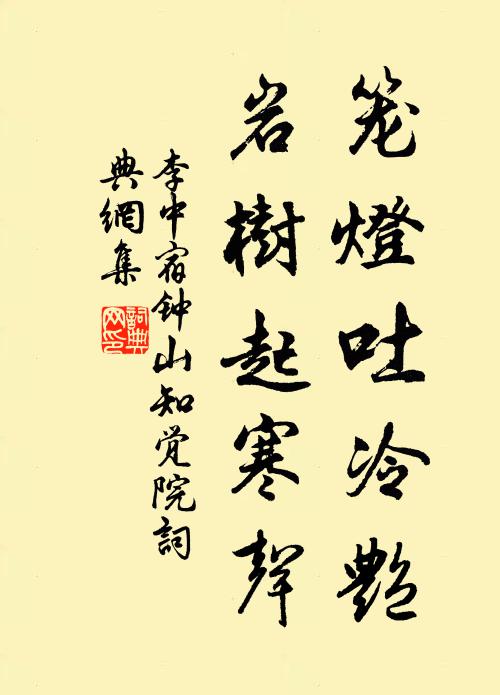 笼燈吐冷艷
岩樹起寒聲
李中宿钟山知觉院詞
典網集
詞典
网印